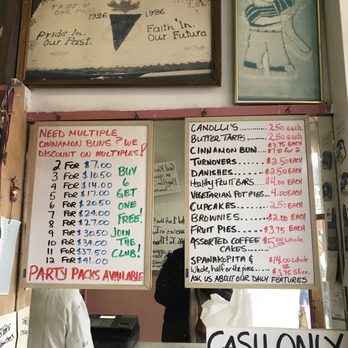 PRIDE OF
OUR PAST
1926 1986
Pride In
Our Past.
Faith In
Our Future
NEED MULTIPLE
CINNAMON BUNS? WE
DISCOUNT ON MULTIPLES!
2 FOR $7.00
3 FOR $10.50
4 FOR $14.00
5 FOR $17.00
6 FOR $20.50
7 FOR $24.00
8 FOR $27.00
9 FOR $30.50
10 FOR $34.00
11 FOR $37.50
12 FOR $41.00
BUY
6
GET
ONE
FREE!
JOIN
THE
CLUB!
PARTY PACKS AVAILABLE
CANOLLI'S 2.50 each
BUTTER TARTS 2.50 each
CINNAMON BUN $3.75 each
$7.00 for 2
TURNOVERS $2.50 each
DANISHES $2.50 each
Healthy FRUIT BARS $4.00 each
VEGETARIAN POT PIES 4.00 each
CUPCAKES 2.50 each
BROWNIES $2.00 each
FRUIT PIES $3.75 each
ASSORTED COFFEE
CAKES
SPANAKOPITA $14.00 whole
Whole, half or the piece or $3.75 Slice
ASK US ABOUT OUR DAILY FEATURES
CASH ONLY